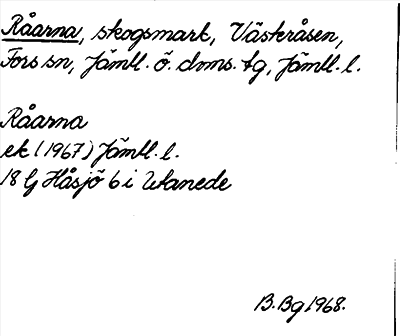 Råarna, skogsmark, Västeråsen,
Fors sn, Jämtl. ö. doms. tg, Jämtl. l.
Råarna
ek (1967) Jämtl. l.
18 G Håsjö 6 i Utanede
B. Bg 1968.